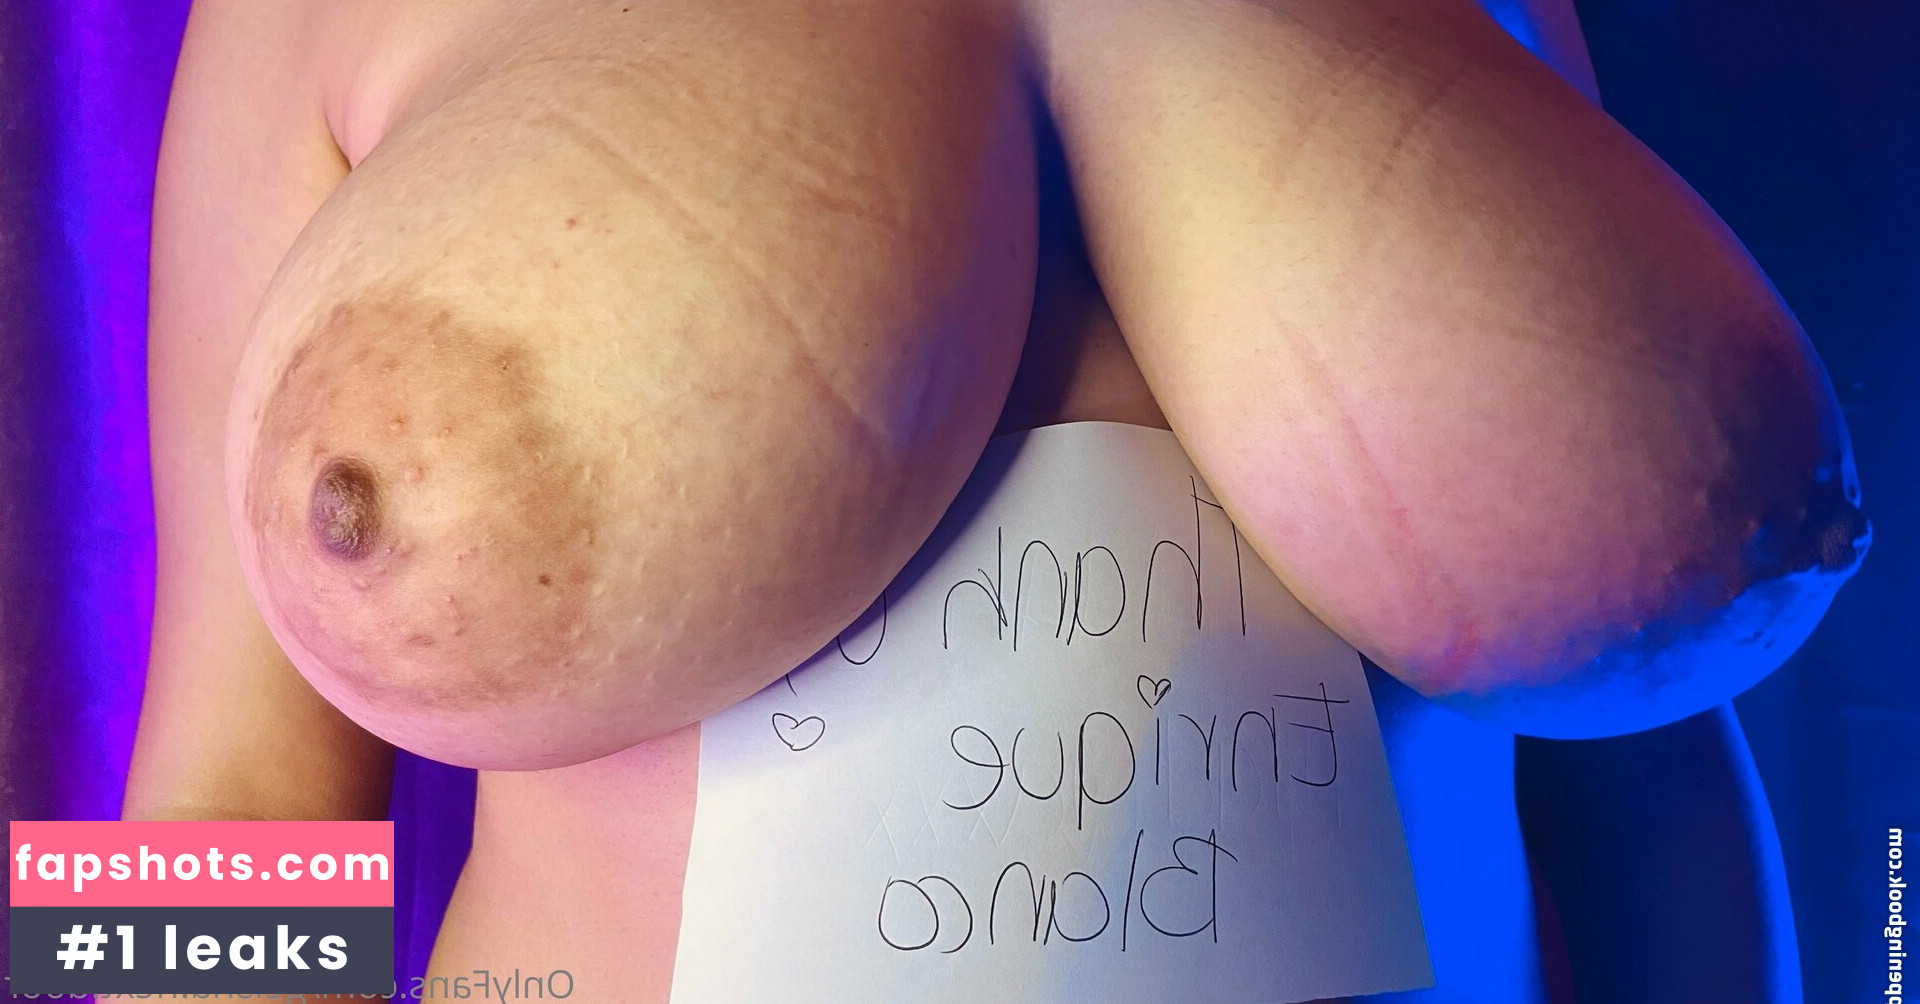 Thank U
Enrique
Blanco
fapshots.com
#1 leaks
OnlyFans.